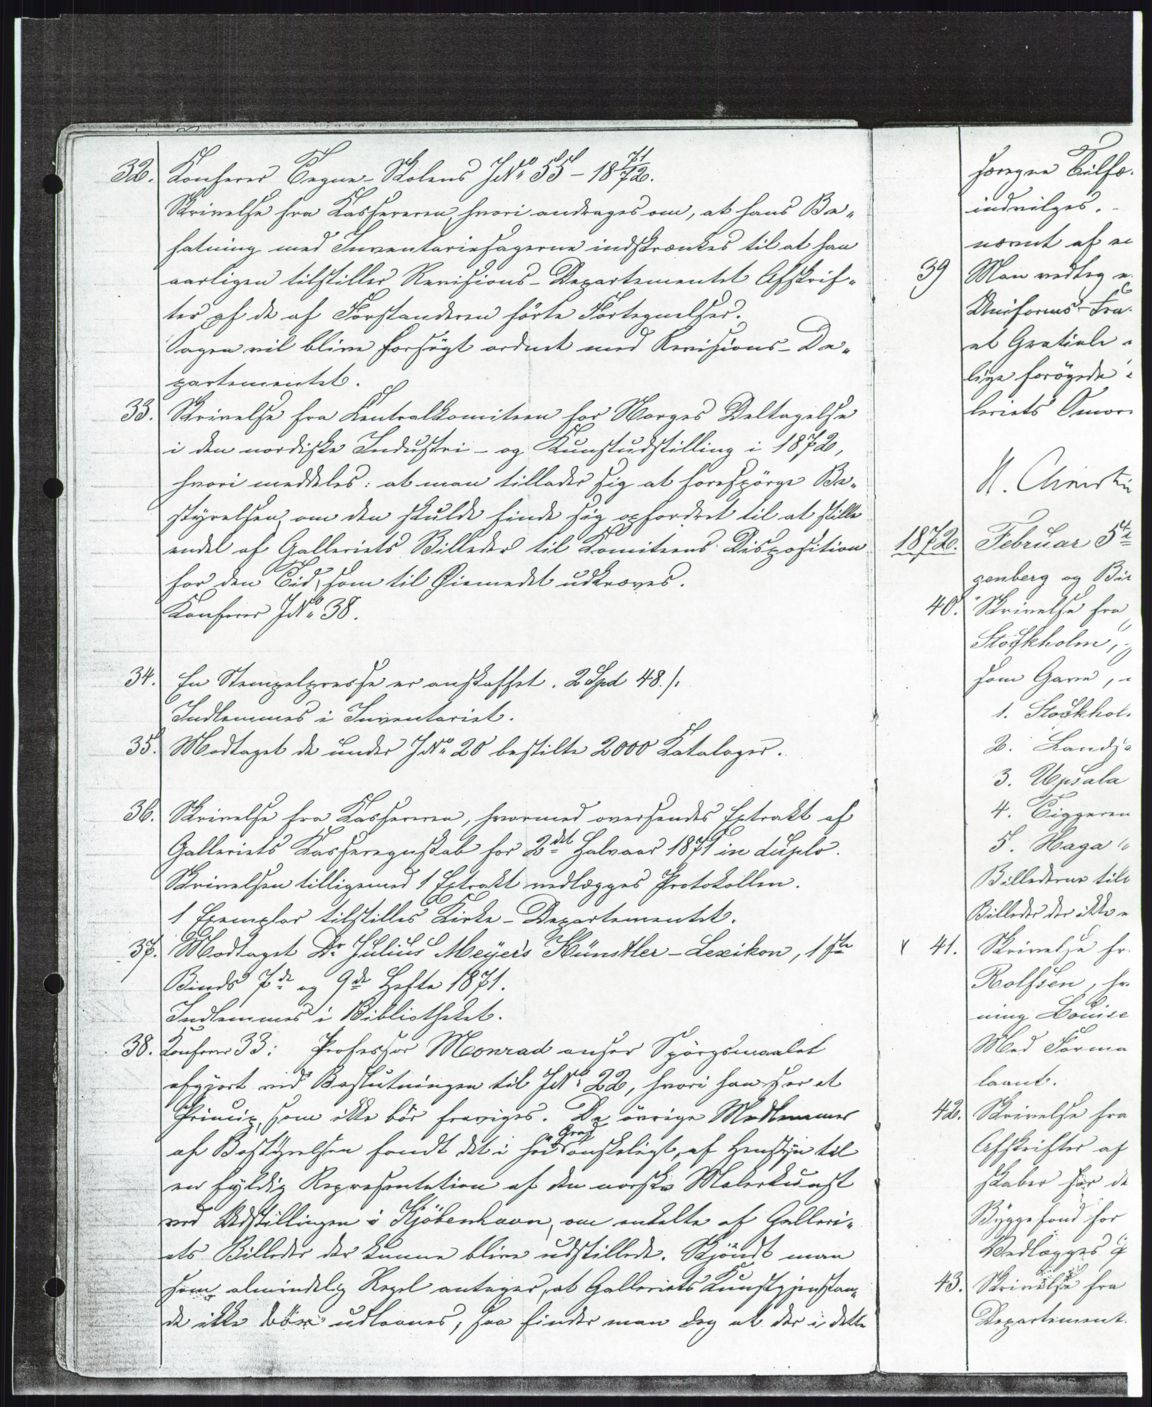 32. Konferer Tegne-Skolens JNo 55 - 1871/72.
Skrivelse fra Kassereren, hvori andrages om, at hans Be-
fatning med Inventariesagerne indskrænkes til at han
aarligen tilstiller Revisions-Departementet Afskrif-
ter af de af Forstanderen förte Fortegnelser.
Sagen vil blive forsögt ordnet med Revisions-De-
partementet.
33. Skrivelse fra Centralkomiteen for Norges Deltagelse
i den nordiske Industri- og Kunstudstilling i 1872,
hvori meddeles: at man tillader sig at forespörge Be-
styrelsen, om den skulde finde sig opfordret til at stille
endel af Galleriets Billeder til Komiteens Disposition
for den Tid, som til Öiemedet udkræves.
Konferer JNo 38.
34. En Stempelpresse er anskaffet. 2 Spd 48 s.
Indlemmes i Inventariet.
35. Modtaget de under JNo 20 bestilte 2000 Kataloger.
36. Skrivelse fra Kassereren, hvormed oversendes Extrakt af
Galleriets Kasseregnskab for 2det Halvaar 1871 in duplo.
Skrivelsen tilligemed 1 Extrakt vedlægges Protokollen.
1 Exemplar tilstilles Kirke-Departementet.
37. Modtaget Dr Julius Meyers Künstler-Lexikon, 1ste
Binds 7de og 9de Hefte 1871.
Indlemmes i Bibliotheket.
38. Konferer 33: Professor Monrad anser Spörgsmaalet
afgjort ved Beslutningen til JNo 22, hvori han ser et
Princip, som ikke bör fraviges. De övrige Medlemmer
af Bestyrelsen fandt det i höi Grad önskeligt, af Hensyn til
en fyldig Repræsentation af den norske Malerkunst
ved Udstillingen i Kjöbenhavn, om enkelte af Galleri-
ets Billeder der kunne blive udstillede. Skjöndt man
som almindelig Regel antager, at Galleriets Kunstgjenstan-
de ikke bör udlaanes, saa finder man dog at der i dette
særegne Tilfæ-
indvilges.
nævnt af
39 Man vedtog
Uniforms-Fra
et Gratiale
lige forögede
leriets Omor
N. Christi
1872. Februar 5te
genberg og Bir
40. Skrivelse fra
Stockholm,
som Gave,
1. Stockhol
2. Landja
3. Upsala
4. Tiggeren
5. Haga
Billederne till
Billeder der ikke
x 41. Skrivelse fr.
Rolfsen,
ning Louise
Med Forma
laant.
42. Skrivelse fra
Afskrifter af
skaber for de
Byggefond for
Vedlægges
43. Skrivelse fra
Departement